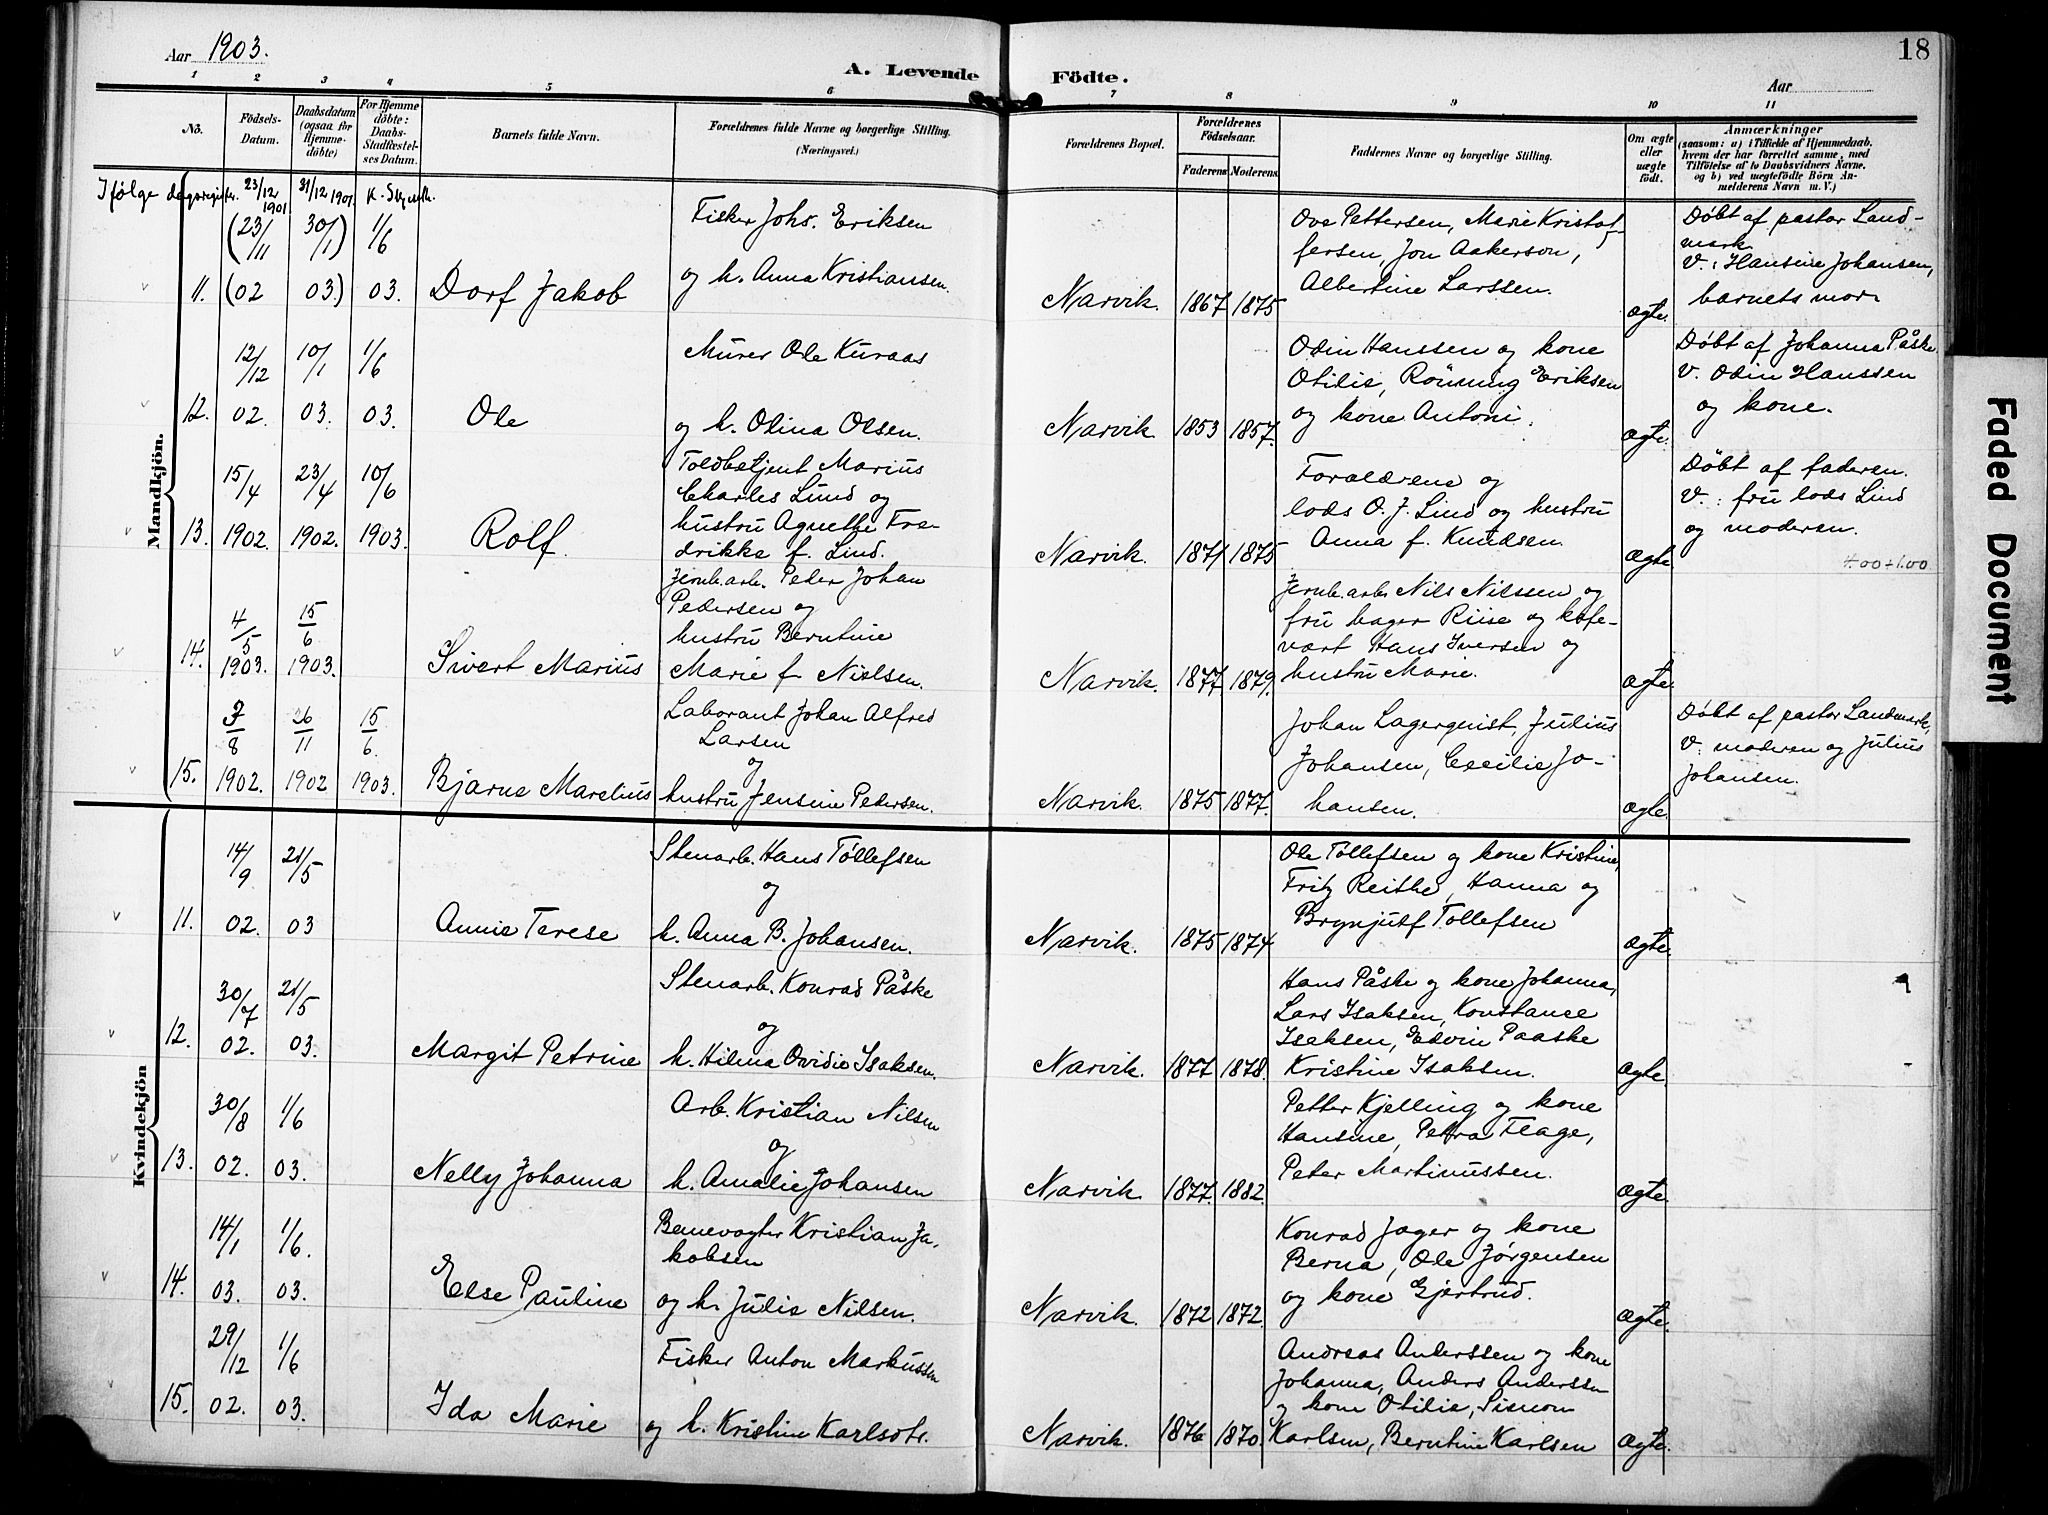 Aar 1903.
A. Levende Födte.
Aar
18
1 2 3 4 5 6 7 8 9 10 11
No.
Födsels-Datum.
Daabsdatum (ogsaa for Hjemme-döbte)
For Hjemme döbte: Daabs-Stadfæstelses Datum.
Barnets fulde Navn.
Forældrenes fulde Navne og borgerlige Stilling. (Næringsvei.)
Forældrenes Bopæl.
Forældrenes Födselsaar.
Faderens Moderens
Faddernes Navne og borgerlige Stilling.
Om ægte eller uægte födt.
Anmærkninger
(saasom: a) i Tilfælde af Hjemmedaab, hvem der har forrettet samme, med Tilföielse af to Daabsvidners Navne. og b) ved uægtefödte Börn Anmelderens Navn m. V.)
Mandkjön.
Ifölge dagsregister. 23/12 1901 31/12 1901
11. (23/11 02 30/1 03.) 1/6 03.
Dorf Jakob
Fisker Johs. Eriksen
og h. Anna Kristiansen.
Narvik. 1867 1875
Ove Pettersen, Marie Kristof-
fersen, Jon Aakerson,
Albertine Larssen.
ægte.
Døbt af pastor Land-
mark
V.: Hansine Johansen,
barnets mor.
12. 12/12 02. 10/1 03. 1/6 03.
Ole
Murer Ole Kuraas
og h. Olina Olsen.
Narvik. 1853 1857.
Odin Hanssen og kone
Otilie, Rönning Eriksen
og kone Antoni.
ægte.
Døbt af Johanna Påske.
V. Odin Hanssen
og kone.
13. 15/4 1902. 23/4 1902. 10/6 1903.
Rolf.
Toldbetjent Marius
Charles Lund og
hustru Agnethe Fre-
drikke f. Lind.
Narvik. 1871 1875
Forældrene og
lods O. J. Lind og hustru
Anna f. Knudsen.
ægte
Døbt af faderen.
V.: fru lods Lind
og moderen.
4.00+1.00
14. 4/5 1903. 15/6 1903.
Sivert Marius
Jernb. arb. Peder Johan
Pedersen og
hustru Berntine
Marie f Nielsen.
Narvik. 1877 1879.
Jernb. arb. Nils Nilssen og
fru bager Riise og kafe-
vært Hans Iversen og
hustru Marie.
ægte.
15. 7/8 1902. 26/11 1902 15/6 1903.
Bjarne Marelius
Laborant Johan Alfred
Larsen
og
hustru Jensine Pedersen.
Narvik. 1875 1877.
Johan Lagerquist, Julius
Johansen, Cecilie Jo-
hansen.
ægte.
Døbt af pastor Landmark,
V. moderen og Julius
Johansen.
Kvindekjön
11. 14/9 02. 21/5 03
Annie Terese
Stenarb. Hans Tollefsen
og
h. Anna B. Johansen.
Narvik. 1875 1874
Ole Tollefsen og kone Kristine,
Fritz Reithe, Hanna og
Brynjulf Tollefsen
ægte.
12. 30/7 02. 21/5 03.
Margit Petrine
Stenarb. Konrad Påske
og
h. Hilma Ovidie Isaksen.
Narvik. 1877 1878.
Hans Påske og kone Johanna,
Lars Isaksen, Konstance
Isaksen, Edvin Paaske
Kristine Isaksen.
ægte
13. 30/8 02. 1/6 03.
Nelly Johanna
Arb. Kristian Nilsen
og
h. Amalie Johansen
Narvik. 1877. 1882.
Petter Kjelling og kone
Hansine, Petra Flage,
Peter Martinussen.
ægte.
14. 14/1 03. 1/6. 03.
Else Pauline
Banevogter Kristian Ja-
kobsen
og h. Julie Nilsen.
Narvik. 1872 1872.
Konrad Jager og kone
Berna, Ole Jørgensen
og kone Gjertrud.
ægte.
15. 29/12 02. 1/6 03.
Ida Marie
Fisker Anton Markussen
og h. Kristine Karlsdtr.
Narvik. 1876 1870.
Andreas Anderssen og kone
Johanna, Anders Anderssen
og kone Otilie, Simon
Karlsen, Berntine Karlsen
ægte.
Faded Document